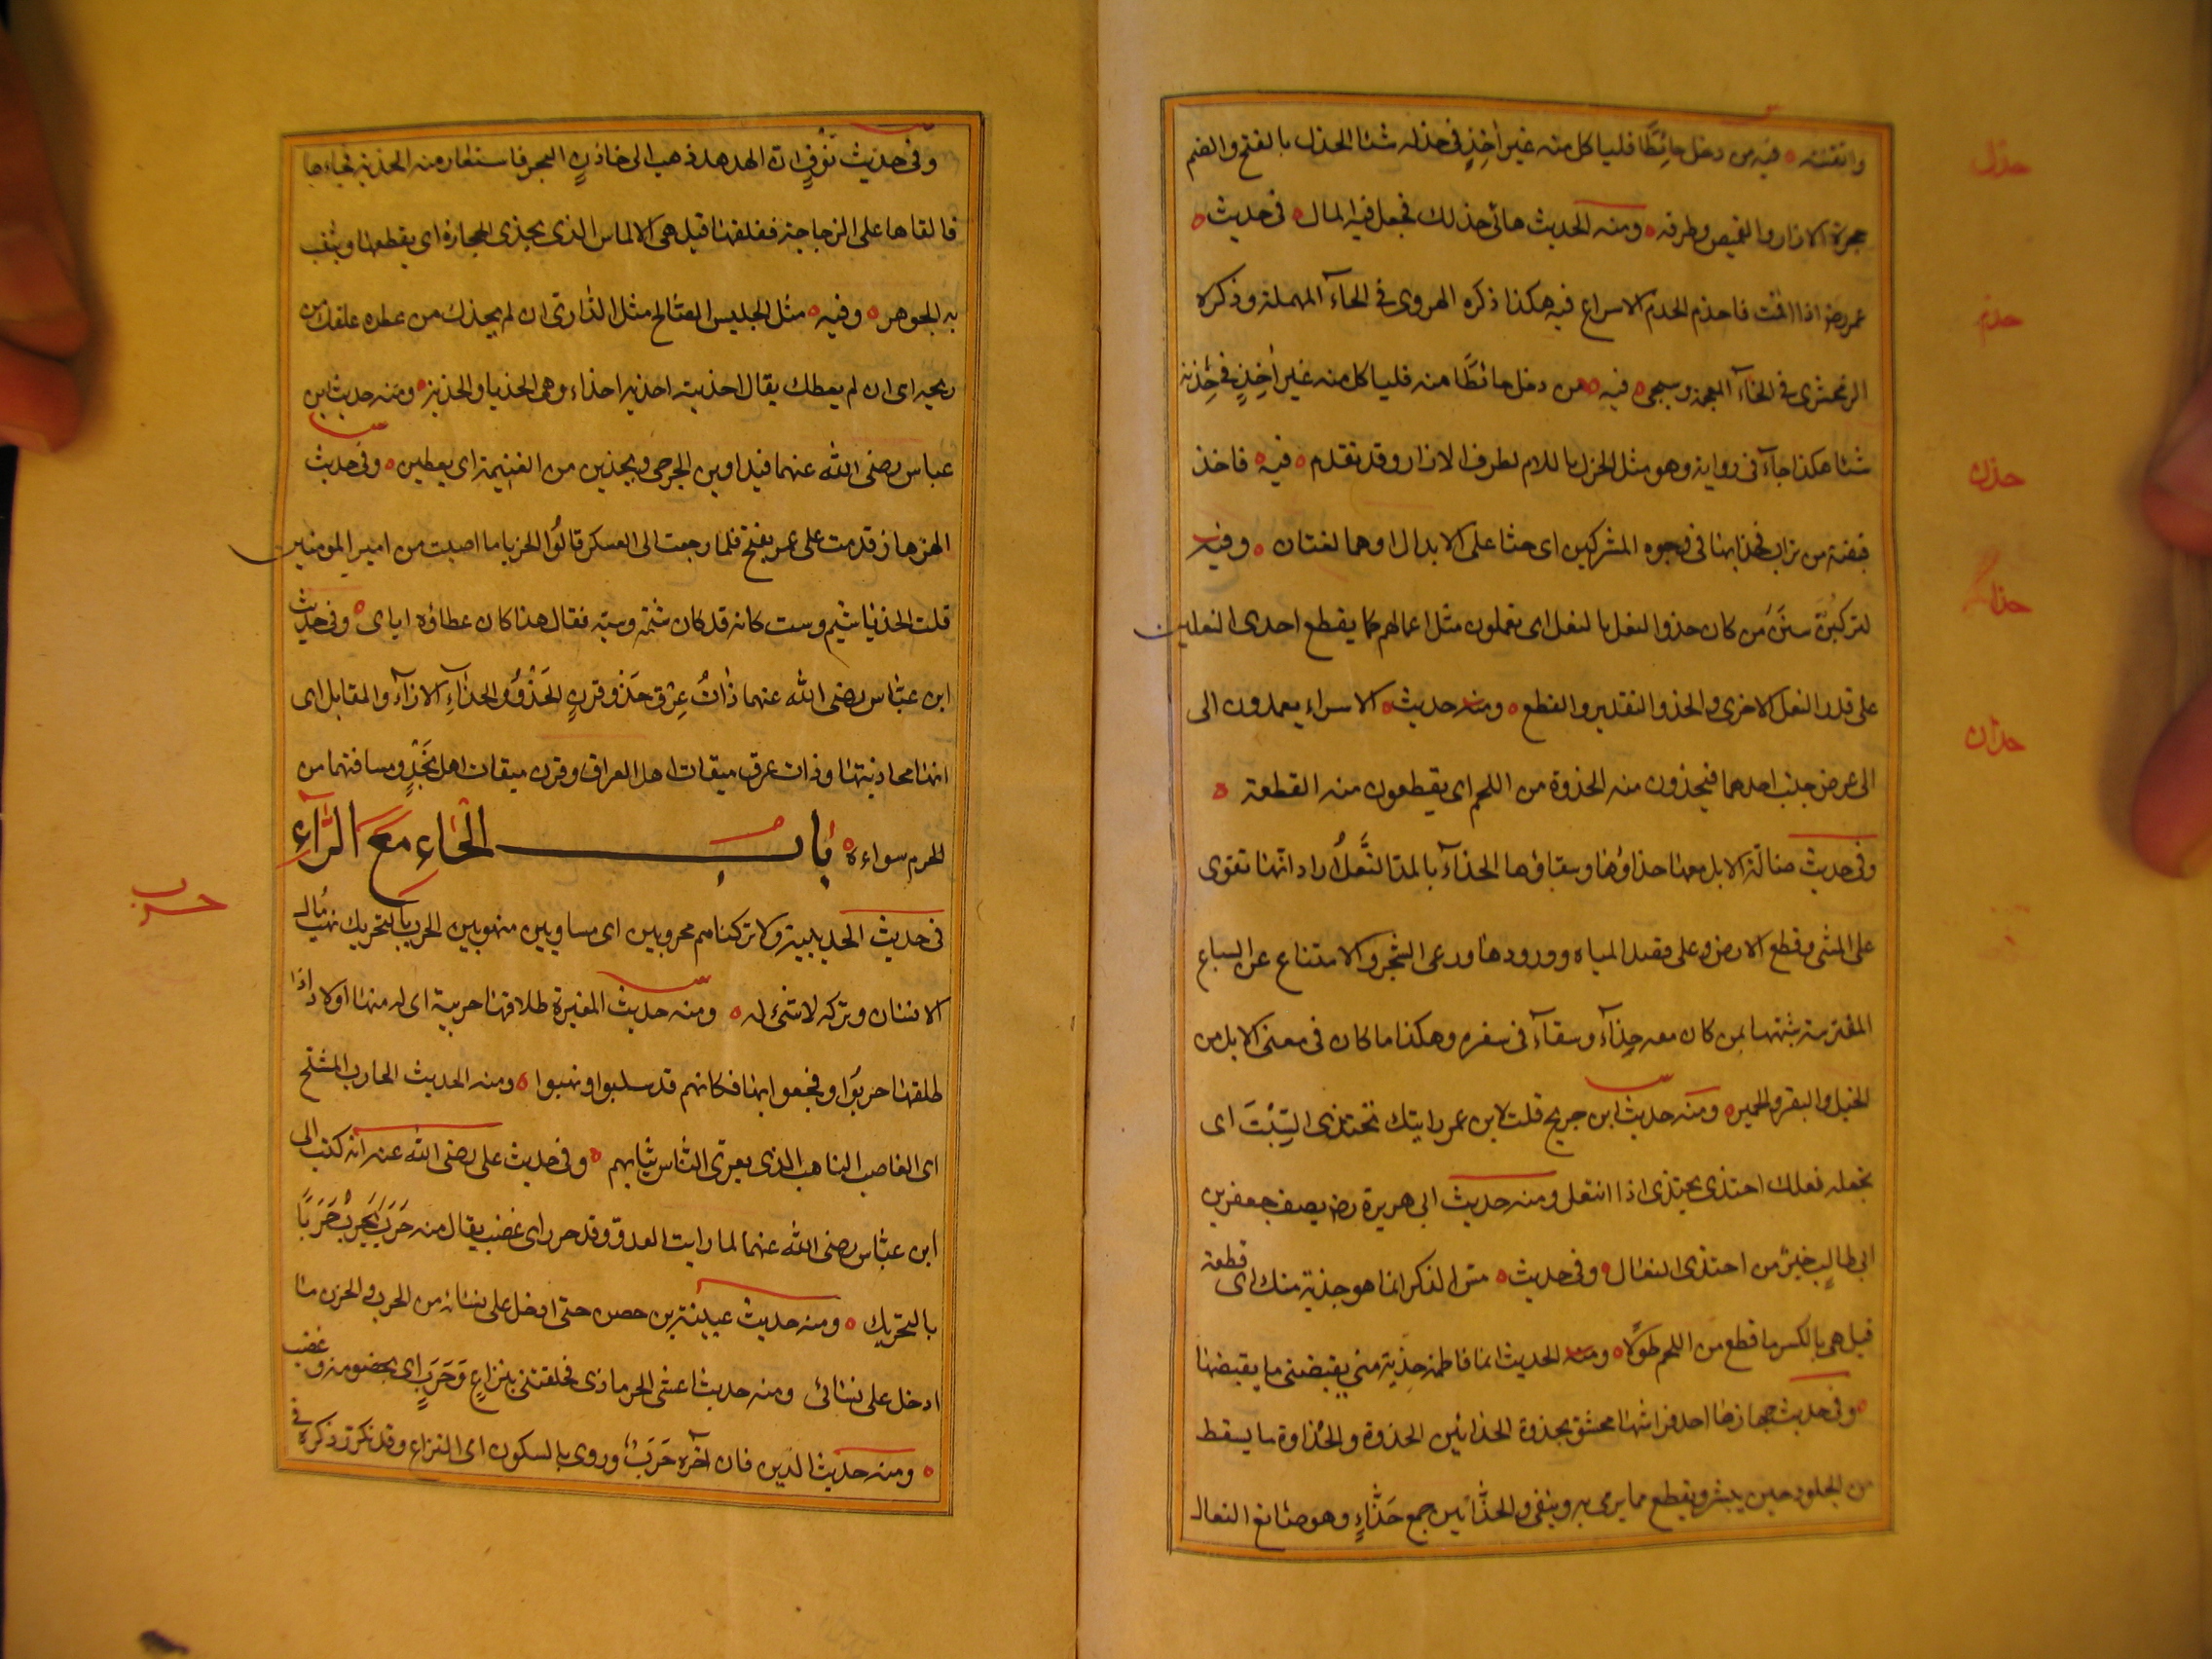 واتقنته ٥ فيه من دخل حائطًا فلياكل منه غير اٰخِذٍ في حذله شئا الحذل بالفتح والضم
حذل
حجزة الازار والقميص وطرفه ٥ ومنه الحديث هاتي حذلك فجعل فيه المال ٥ في حديث ٥
عمر رضه اذا اقمت فاحذم الحذم الاسراع فيه هكذا ذكره الهروى في الحآء المهملة وذكره
حذم
الزمخشرى في الخآء المعجمة وسيجى ٥ فيه ٥ من دخل حائطًا منه فلياكل منه غير اٰخِذٍ في حُذنه
شئا هكذا جآء فى رواية وهو مثل الحذل باللام لطرف الازار وقد تقدم ٥ فيه ٥ فاخذ
حذن
قبضة من تراب فحذا بها فى وجوه المشركين اى حثا على الابدال او هما لغتان ٥ وفيه
حذا
لتركبُنَّ سَنَنَ من كان حذو النعل بالنعل اى تعملون مثل اعمالهم كما يقطع احدى النعلين
على قدر النعل الاخرى والحذو التقدير والقطع ٥ ومنه حديث ٥ الاسراء يعمدون الى
الى عرض جنب احدهما فيحذون منه الحذوة من اللحم اى يقطعون منه القطعة ٥
وفى حديث ضالة الابل معها حذاؤها وسقاؤها الحذآء بالمد النَّعلُ اراد انها تقوى
على المشى وقطع الارض وعلى قصد المياه وورودها ورعى الشجر والامتناع عن السباع
المفترسة شبهها بمن كان معه حِذآء وسقآء فى سفره وهكذا ما كان فى معنى الابل من
الخيل والبقر والحمير ٥ ومنه حديث ابن جريج قلت لابن عمر رايتك تحتذى السِّبْتَ اى
تجعله نعلك احتذى يحتذى اذا انتعل ومنه حديث ابى هريرة رضه يصف جعفر بن
ابى طالب خير من احتذى النعال ٥ وفى حديث ٥ مس الذكر انما هو حذية منك اى قطعة
قيل هى بالكسر ما قطع من اللحم طولًا ٥ ومنه الحديث انما فاطمة حِذية منى يقبضنى ما يقبضها
٥ وفى حديث جهازها احد فراشها محشو بحذوة الحذائين الحذوة والحُذاوة ما يسقط
من الجلود حين يبشر ويقطع مما يرمى به وينفى والحذَّائين جمع حَذَّاءٍ وهو صانع النعال
وفى حديث نَوْفٍ ان الهدهد ذهب الى خازن البحر فاستعار منه الحذية فجاء بها
فالقاها على الزجاجة ففلقها قيل هى الالماس الذى يحذى الحجارة اى يقطعها ويثقب
به الجوهر ٥ وفيه ٥ مثل الجليس الصالح مثل الدَّارى ان لم يحذك من عطره علقك من
ريحه اى ان لم يعطك يقال احذيته احذيه احذاء وهى الحذيا والحذية ٥ ومنه حديث ابن
عباس رضى الله عنهما فيداوين الجرحى ويحذين من الغنيمة اى يعطين ٥ وفى حديث
الهزهاز قدمت على عمر بفتح فلما رجعت الى العسكر قالُوا الحذيا ما اصبت من امير المومنين
قلت الحذيا شيم وست كانه قد كان شتمه وسبّه فقال هذا كان عطاؤه اياى ٥ وفى حديث
ابن عبّاس رضى الله عنهما ذاتُ عِرْق حَذْو قرنٍ الحَذْوُ والحذاءِ الازآء والمقابل اى
انها محاذيتها وذات عرق ميقات اهل العراق وقرن ميقات اهل نَجْدٍ ومسافتهما من
الحرم سواء ٥ بابُ الحَاءِ مَعَ الرَّآءِ
حرب
فى حديث الحديبية ولا تركناهم محروبين اى مسلوبين منهوبين الحرب بالتحريك نهب مال
الانسان وتركه لا شئ له ٥ ومنه حديث المغيرة طلاقها حربية اى له منها اولاد اذا
طلقها حربُوا وفجعوا بها فكانهم قد سلبوا ونهبوا ٥ ومنه الحديث الحارب المشلح
اى الغاصب الناهب الذى يعرّى النّاس ثيابهم ٥ وفى حديث على رضى الله عنه انه كتب الى
ابن عبّاس رضى الله عنهما لما رايت العدوّ وقد حرب اى غضب يقال منه حَرَبَ يَحْرِبُ حَرَبًا
بالتحريك ٥ ومنه حديث عيينة بن حصن حتى ادخل على نسائه من الحرب والحزن ما
ادخل على نسائى ومنه حديث اعشى الحرمازى فخلفتنى بنزاعٍ وَحَرَبٍ اى بخصومة وغضب
٥ ومنه حديث الدين فان آخره حَرَبٌ وروى بالسكون اى النزاع وقد تكرر ذكره فى